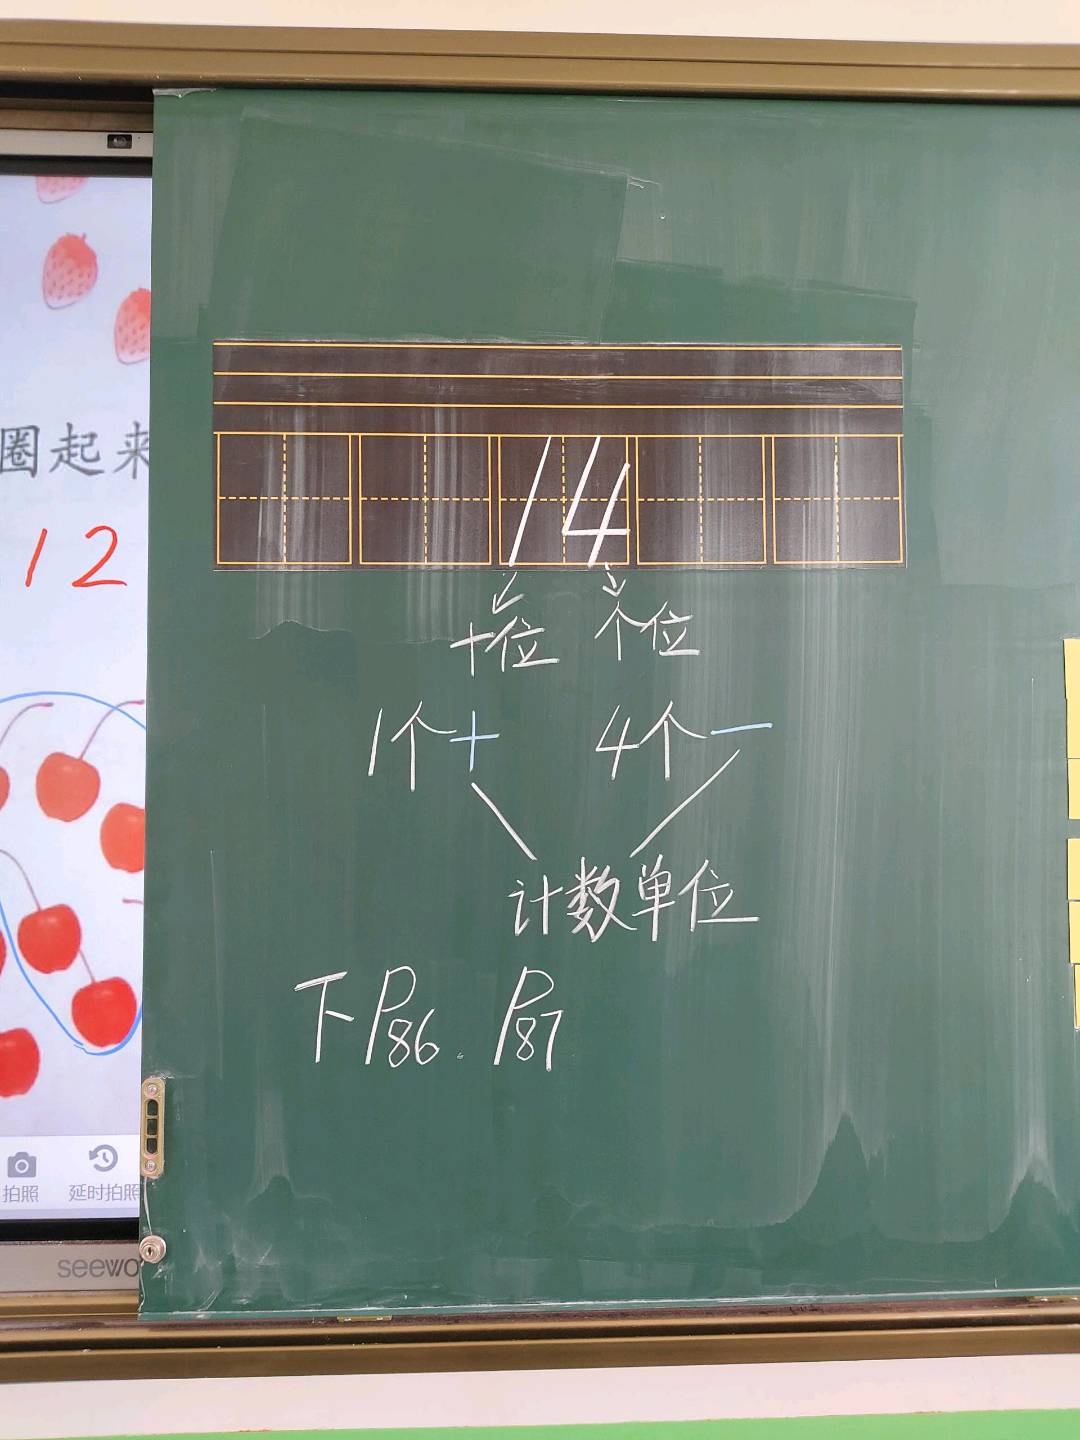 圈起来
12
14
十位 个位
1个十 4个一
计数单位
下P86. P87
拍照 延时拍照
seewo